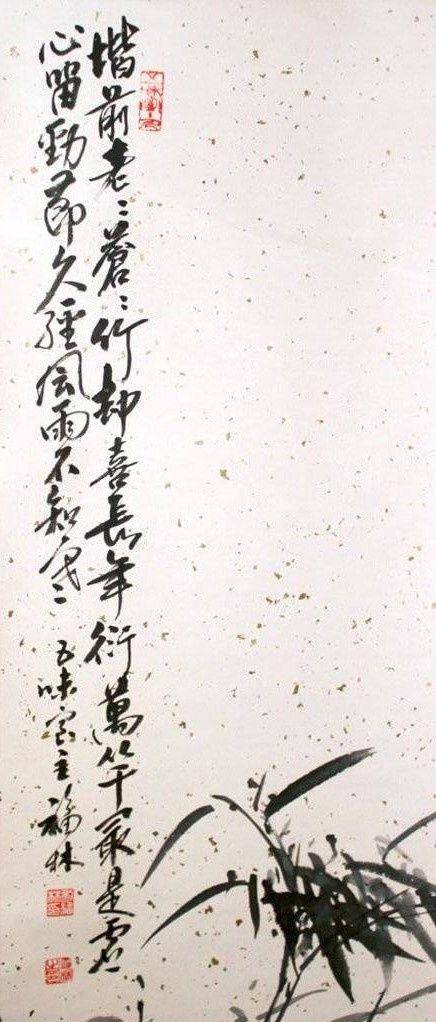 堦前老〻蒼〻竹却喜長年衍萬竿最是虛
心留勁節久經風雨不知寒
五味主福林